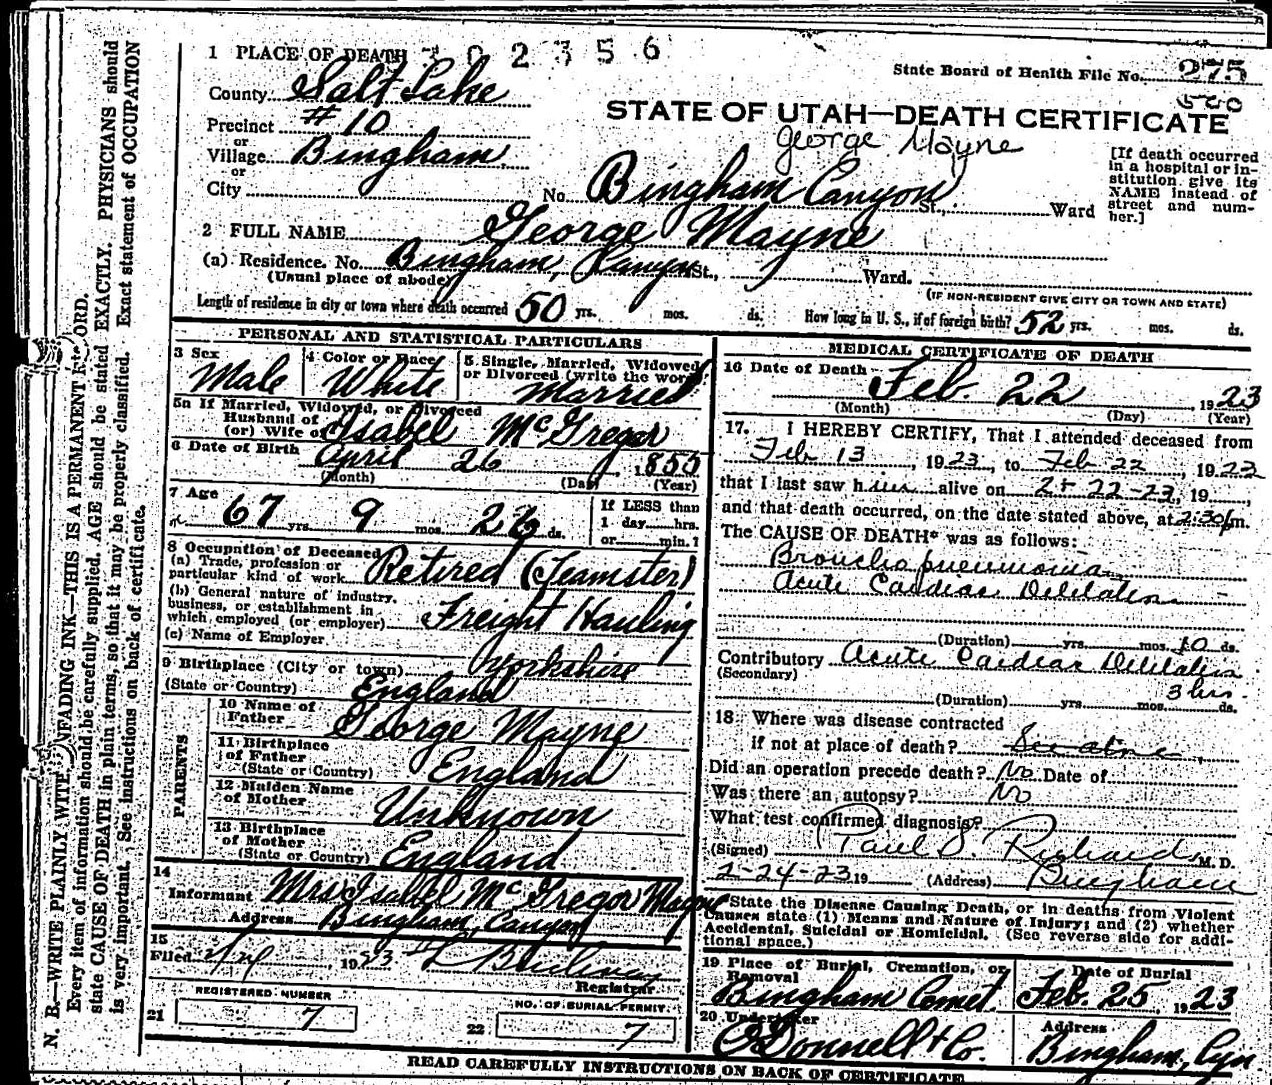 1 PLACE OF DEATH 302356
State Board of Health File No. 275
560
County Salt Lake
STATE OF UTAH—DEATH CERTIFICATE
Precinct #10
George Mayne
or
Village Bingham
or
City
No. Bingham Canyon St., Ward
[If death occurred
in a hospital or in-
stitution give its
NAME instead of
street and num-
ber.]
2 FULL NAME George Mayne
(a) Residence. No. Bingham, Canyon St., Ward.
(Usual place of abode)
(IF NON-RESIDENT GIVE CITY OR TOWN AND STATE)
Length of residence in city or town where death occurred 50 yrs. mos. ds. How long in U. S., if of foreign birth? 52 yrs. mos. ds.
PERSONAL AND STATISTICAL PARTICULARS
3 Sex Male
4 Color or Race White
5 Single, Married, Widowed
or Divorced (write the word)
Married
5a If Married, Widowed, or Divorced
Husband of
(or) Wife of Isabel McGregor
6 Date of Birth April 26, 1855
(Month) (Day) (Year)
7 Age 67 yrs. 9 mos. 26 ds.
If LESS than
1 day.....hrs.
or.....min.?
8 Occupation of Deceased
(a) Trade, profession or
particular kind of work Retired (Teamster)
(b) General nature of industry,
business, or establishment in
which employed (or employer) Freight Hauling
(c) Name of Employer
9 Birthplace (City or town) Yorkshire
(State or Country) England
PARENTS
10 Name of
Father George Mayne
11 Birthplace
of Father
(State or Country) England
12 Maiden Name
of Mother Unknown
13 Birthplace
of Mother
(State or Country) England
14
Informant Mrs Isabel McGregor Mayne
Address Bingham, Canyon
15
Filed 1923
Registrar
REGISTERED NUMBER
21 7
NO. OF BURIAL PERMIT
22 7
MEDICAL CERTIFICATE OF DEATH
16 Date of Death Feb. 22 1923
(Month) (Day) (Year)
17. I HEREBY CERTIFY, That I attended deceased from
Feb 13, 1923, to Feb 22, 1923
that I last saw him alive on 2-22-23, 19
and that death occurred, on the date stated above, at 2:30 pm.
The CAUSE OF DEATH* was as follows:
Broncho pneumonia
Acute Cardiac Dilitation
(Duration) yrs. mos. 10 ds.
Contributory Acute Cardiac Dilitation
(Secondary)
3 hrs.
(Duration) yrs. mos. ds.
18 Where was disease contracted
if not at place of death? See above
Did an operation precede death? No Date of
Was there an autopsy? No
What test confirmed diagnosis?
(Signed) Paul S. Richards M. D.
2-24-23 19 (Address) Bingham
*State the Disease Causing Death, or in deaths from Violent
Causes state (1) Means and Nature of Injury; and (2) whether
Accidental, Suicidal or Homicidal. (See reverse side for addi-
tional space.)
19 Place of Burial, Cremation, or
Removal
Bingham Cemet.
Date of Burial
Feb. 25, 1923
20 Undertaker
O'Donnell & Co.
Address
Bingham, Cyn
READ CAREFULLY INSTRUCTIONS ON BACK OF CERTIFICATE
N. B.—WRITE PLAINLY WITH UNFADING INK—THIS IS A PERMANENT RECORD.
Every item of information should be carefully supplied. AGE should be stated EXACTLY. PHYSICIANS should
state CAUSE OF DEATH in plain terms, so that it may be properly classified. Exact statement of OCCUPATION
is very important. See instructions on back of certificate.